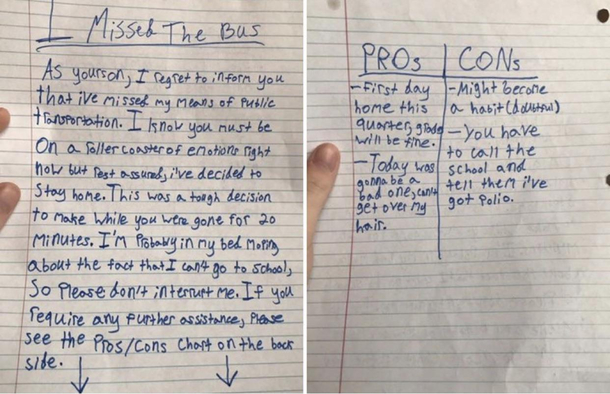 I Missed The Bus
As yourson, I regret to inform you
that ive missed my means of Public
transportation. I know you must be
On a roller coaster of emotions right
now but rest assured, i've decided to
Stay home. This was a tough decision
to make while you were gone for 20
minutes. I'm Probably in my bed moping
about the fact that I can't go to School,
So Please don't interrupt me. If you
require any further assistance, Please
see the Pros/Cons Chart on the back
side.
PROs
-First day
home this
quarter, grade
will be fine.
-Today was
gonna be a
bad one, can't
get over my
hair.
CONs
-Might become
a habit (doubtful)
-You have
to call the
school and
tell them i've
got polio.